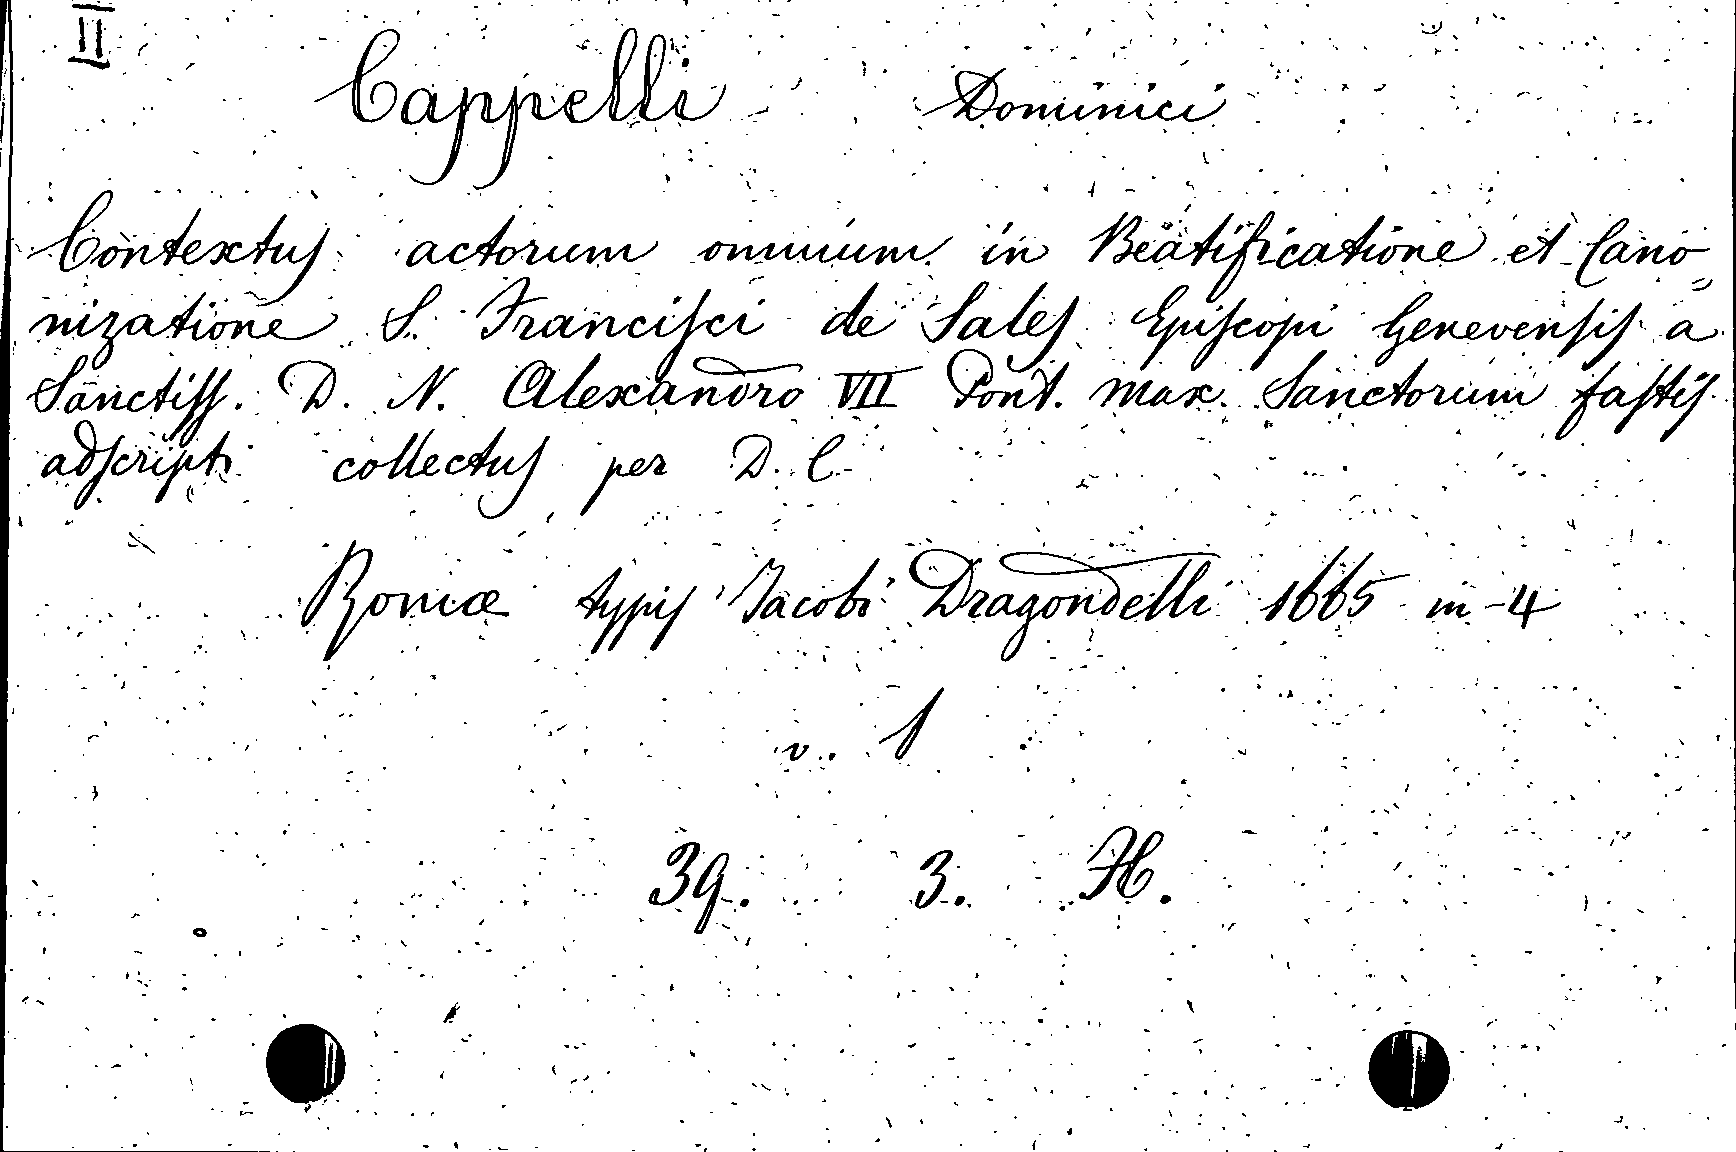 II
Cappelli Dominici
Contextus actorum omnium in Beatificatione et Cano=
nizatione S. Francisci de Sales Episcopi Genevensis a
Sanctiss. D. N. Alexandro VII Pont. Max. Sanctorum fastis
adscripti collectus per D. C.
Romæ typis Jacobi Dragondelli 1665 in-4
v. 1
39. 3. H.